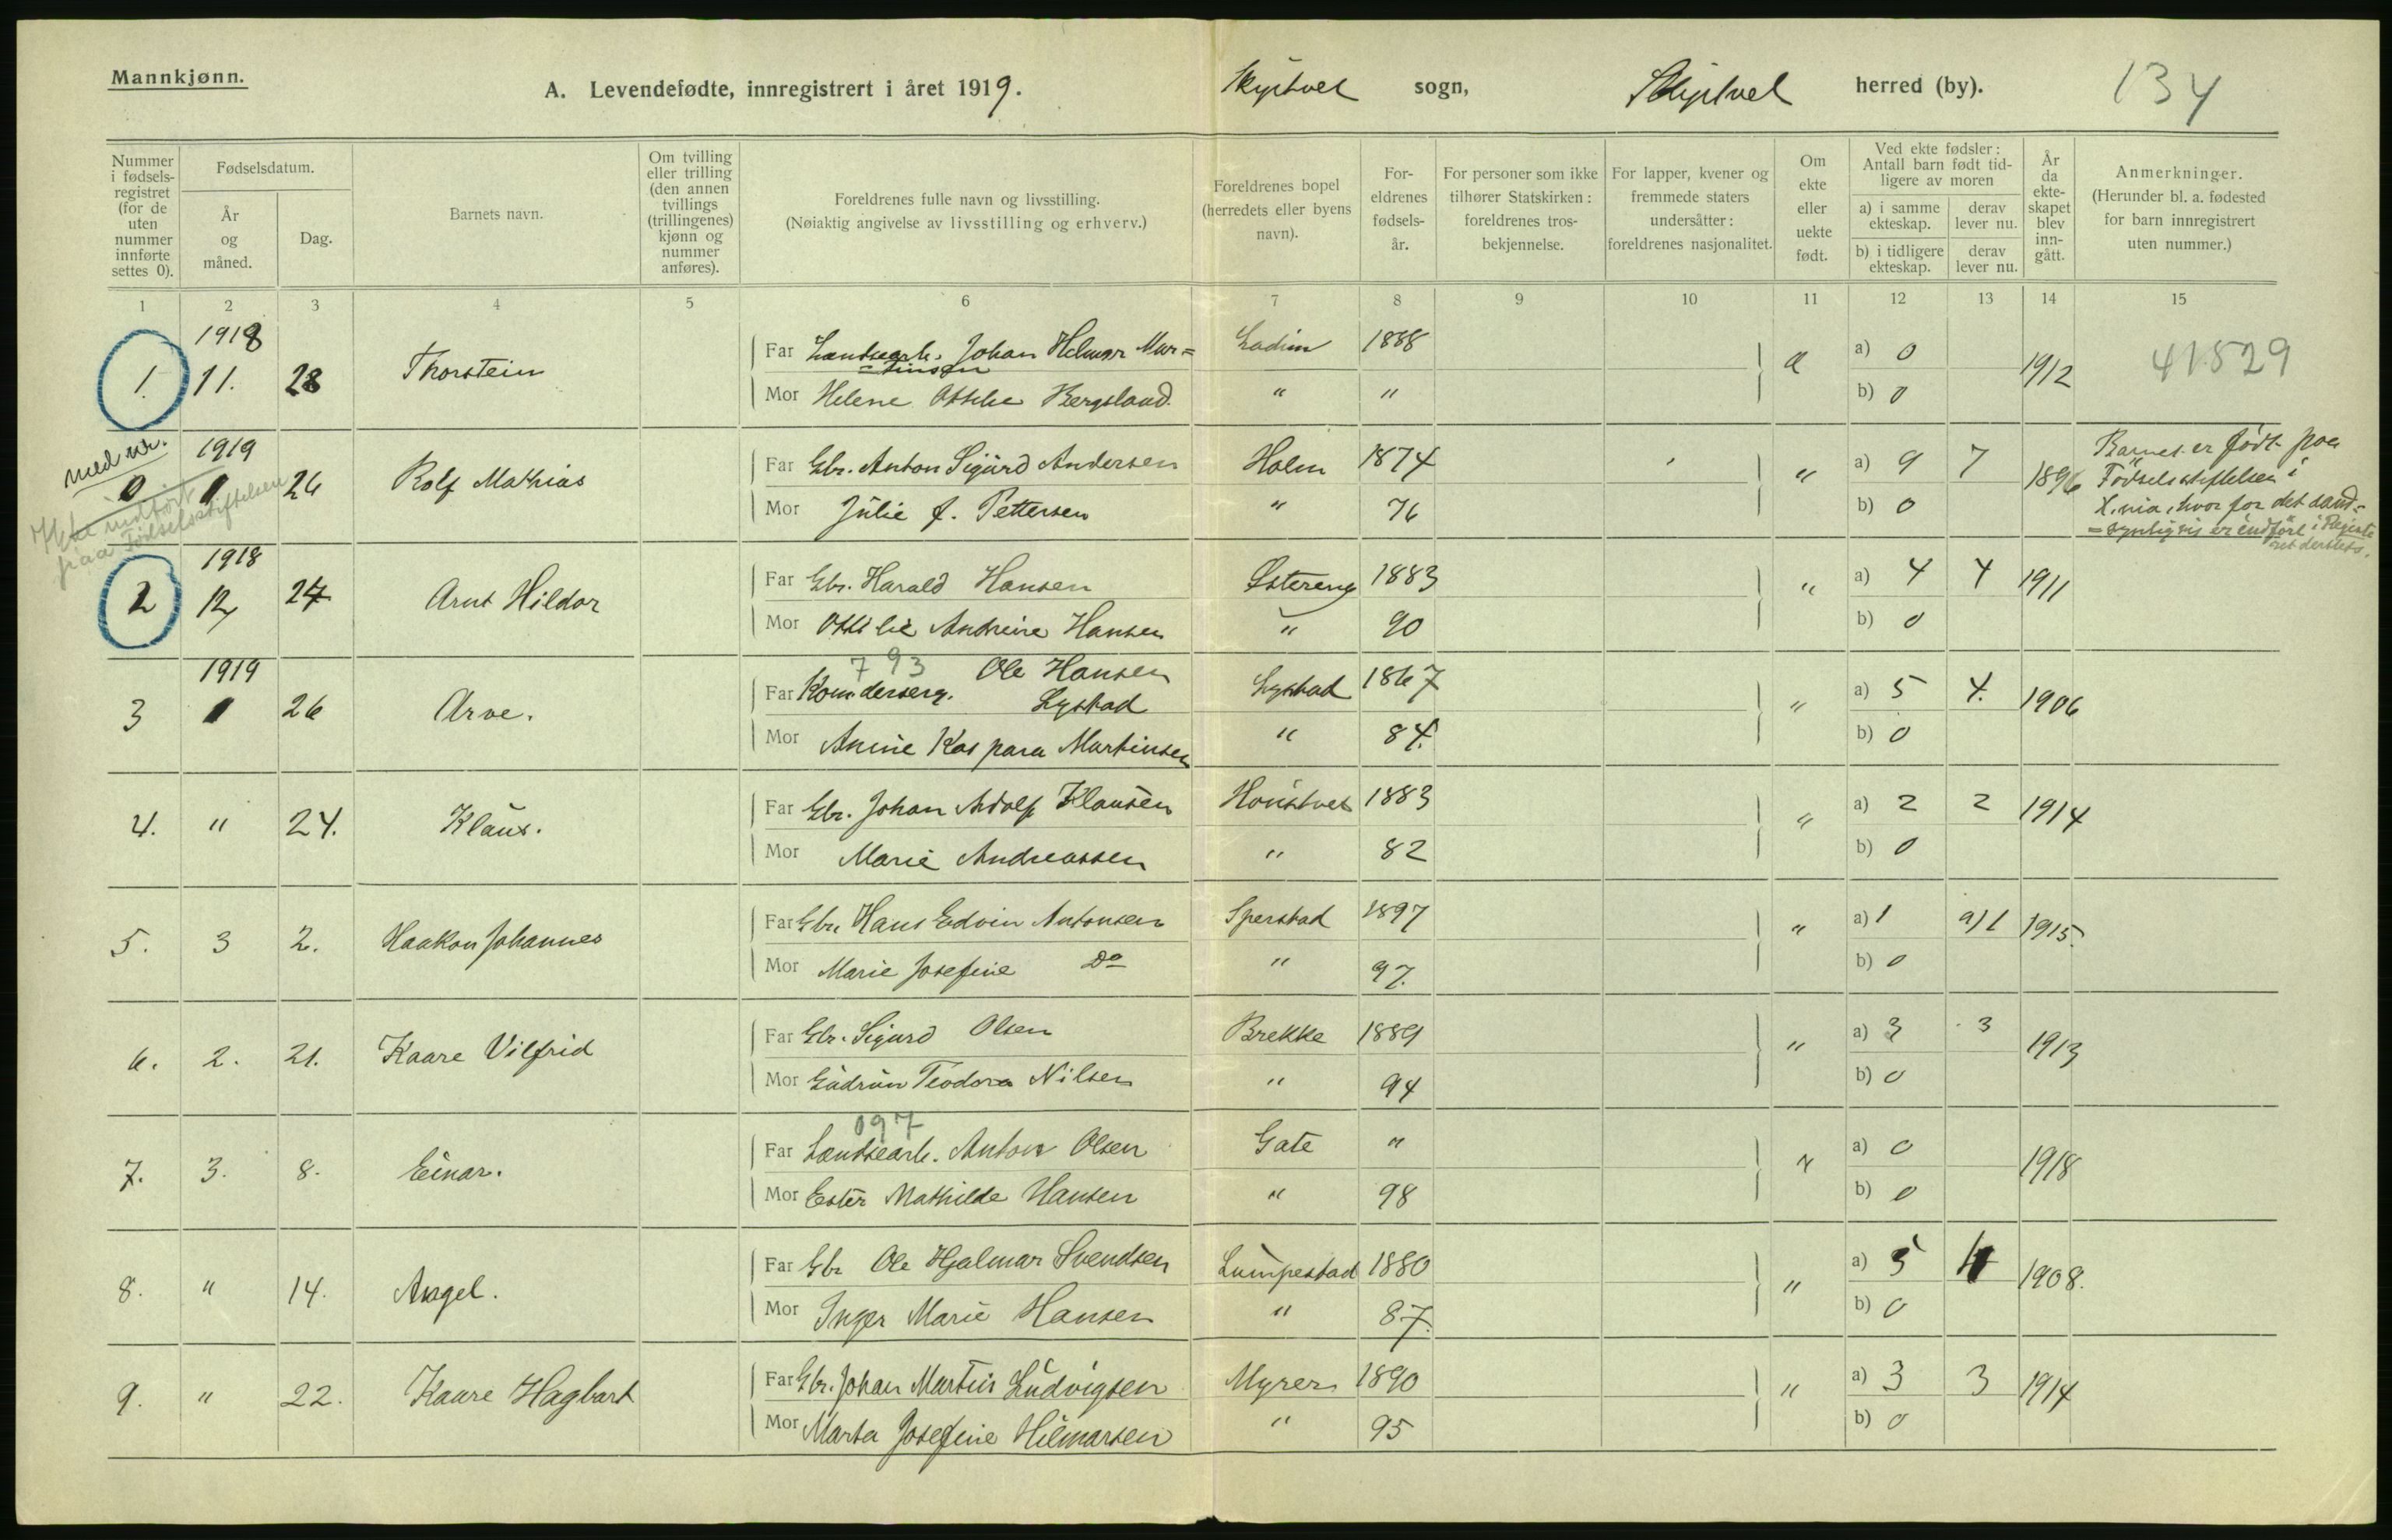 Mannkjønn.
A. Levendefødte, innregistrert i året 1919.
Skiptvet sogn,
Skiptvet herred (by).
134
Nummer i fødsels-registret (for de uten nummer innførte settes 0).
Fødselsdatum.
År og måned.
Dag.
Barnets navn.
Om tvilling eller trilling (den annen tvillings (trillingenes) kjønn og nummer anføres).
Foreldrenes fulle navn og livsstilling.
(Nøiaktig angivelse av livsstilling og erhverv.)
Foreldrenes bopel (herredets eller byens navn).
For-eldrenes fødsels-år.
For personer som ikke tilhører Statskirken: foreldrenes tros-bekjennelse.
For lapper, kvener og fremmede staters undersåtter: foreldrenes nasjonalitet.
Om ekte eller uekte født.
Ved ekte fødsler: Antall barn født tid-ligere av moren
a) i samme ekteskap.
derav lever nu.
b) i tidligere ekteskap.
derav lever nu.
År da ekte-skapet blev inn-gått.
Anmerkninger.
(Herunder bl. a. fødested for barn innregistrert uten nummer.)
1 2 3 4 5 6 7 8 9 10 11 12 13 14 15
1918
1. 11. 28 Thorstein
Far Landsearb. Johan Helmar Mar=
=tinsen 1888
a) 0
1912 41529
Mor Helene Ottilie Bergsland. " "
b) 0
med nr.
1919
0 1 26 Rolf Mathias
Far Gbr. Anton Sigurd Andersen Holm 1874 " a) 9 7 1896
Mor Julie f. Pettersen " 76 b) 0
Barnet er født paa
Fødselsstiftelsen i
X.nia, hvor for det sand-
=synligvis er indført i Registe
ret dersteds.
Ikke indført
fraa Fødselsstiftelsen
1918
2 12 27 Arnt Hildor
Far Gbr. Harald Hansen Østereng 1883 " a) 4 4 1911
Mor Ottilie Andreine Hansen " 90 b) 0
1919
793
3 1 26 Arve.
Far Komderserg. Ole Hansen
Lystad Lystad 1867 " a) 5 4. 1906
Mor Anine Kaspara Martinsen " 84. b) 0
4. " 24. Klaus.
Far Gbr. Johan Adolf Klausen 1883 " a) 2 2 1914
Mor Marie Andreassen " 82 b) 0
5. 3 2. Haakon Johannes
Far Gbr. Hans Edvin Antonsen Sperstad 1897 " a) 1 a) 1 1915.
Mor Marie Josefine Do " 97. b) 0
6. 2. 21. Kaare Vilfrid
Far Gbr. Sigurd Olsen Brekke 1889 " a) 3 3 1913
Mor Gudrun Teodora Nilsen " 94 b) 0
097
7. 3. 8. Einar.
Far Landsearb. Anton Olsen Gate " " a) 0 1918
Mor Ester Mathilde Hansen " 98 b) 0
8. " 14. Angel.
Far Gbr Ole Hjalmar Svendsen Lumpestad 1880 " a) 5 4 1908.
Mor Inger Marie Hansen " 87. b) 0
9. " 22. Kaare Hagbart
Far Gbr. Johan Martin Ludvigsen Myrer 1890 " a) 3 3 1914
Mor Marta Josefine Hilmarsen " 95 b) 0